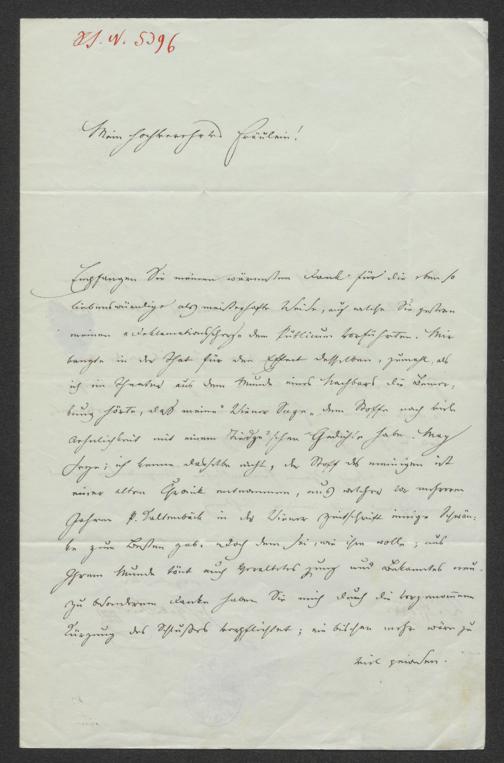 I. N. 5396
Mein hochverehrtes Fräulein!
Empfangen Sie meinen wärmsten Dank für die eben so
liebenswürdige als meisterhafte Weise, auf welche Sie gestern
meinen Deklamationsscherz dem Publicum vorführten. Mir
bangte in der That für den Effect desselben, zumal, als
ich im Theater aus dem Munde eines Nachbars die Bemer-
kung hörte, daß meine Wiener Sage dem Stoffe nach viele
Aehnlichkeit mit einem Gedichte habe. Mag
seyn; ich kenne dasselbe nicht, der Stoff des meinigen ist
einer alten Chronik entnommen, aus welcher vor mehreren
Jahren P. Kaltenbäck in der Wiener Zeitschrift einige Schwän-
ke zum Besten gab. Doch dem sei, wie ihm wolle; aus
Ihrem Munde tönt auch Veraltetes jung und Bekanntes neu.
Zu besonderem Danke haben Sie mich durch die vorgenommene
Kürzung des Schlußes verpflichtet; ein bischen mehr wäre zu
viel gewesen.